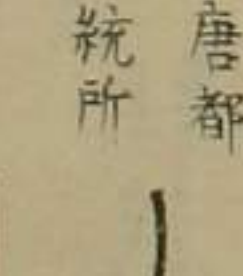 唐都
統所